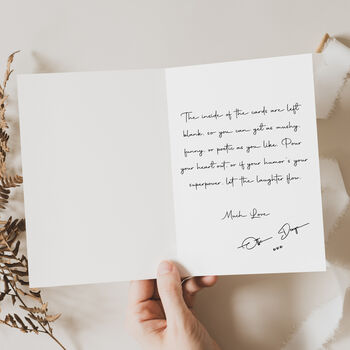 The inside of the cards are left
blank so you can get as mushy
funny or poetic as you like. Pour
your heart out or if your humor's your
superpower let the laughter flow.
Much Love